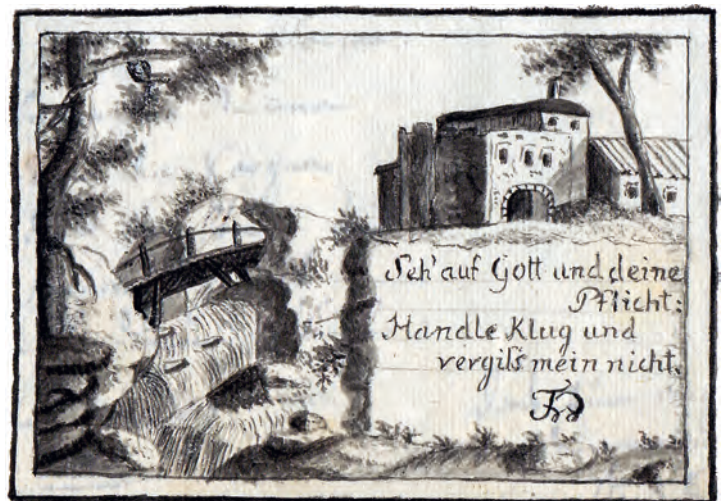 Seh' auf Gott und deine
Pflicht:
Handle Klug und
vergiss mein nicht.